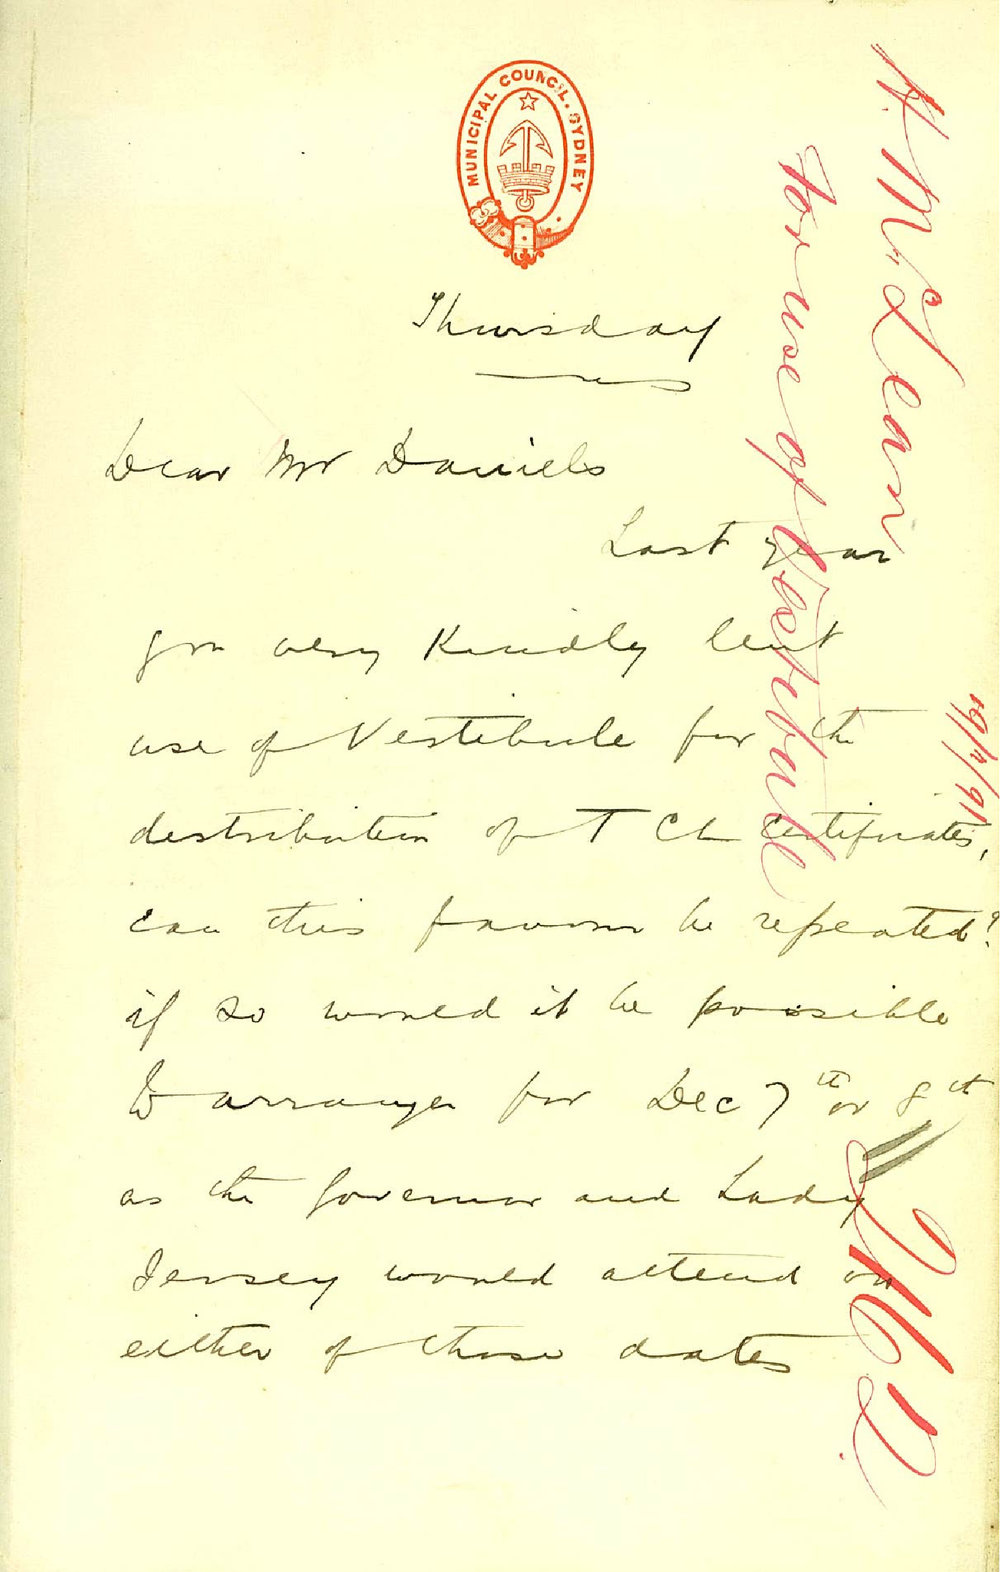 MUNICIPAL COUNCIL. SYDNEY
Thursday
Dear Mr Daniels
Last year
you very Kindly lent
use of Vestibule for the
distribution of T C L Certificates,
can this favour be repeated?
if so would it be possible
to arrange for Dec 7th or 8th
as the Governor and Lady
Jersey would attend on
either of those dates
H. McLean
For use of Vestibule